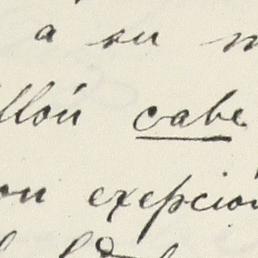 a su
llón cabe
on exepción